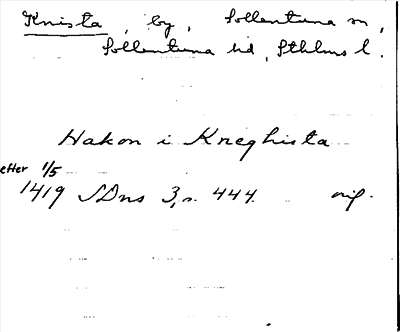 Knista, by, Sollentuna sn,
Sollentuna hd, Sthlms l.
Hakon i Kneghista
efter 1/5
1419 SDns 3, s. 444. orig.